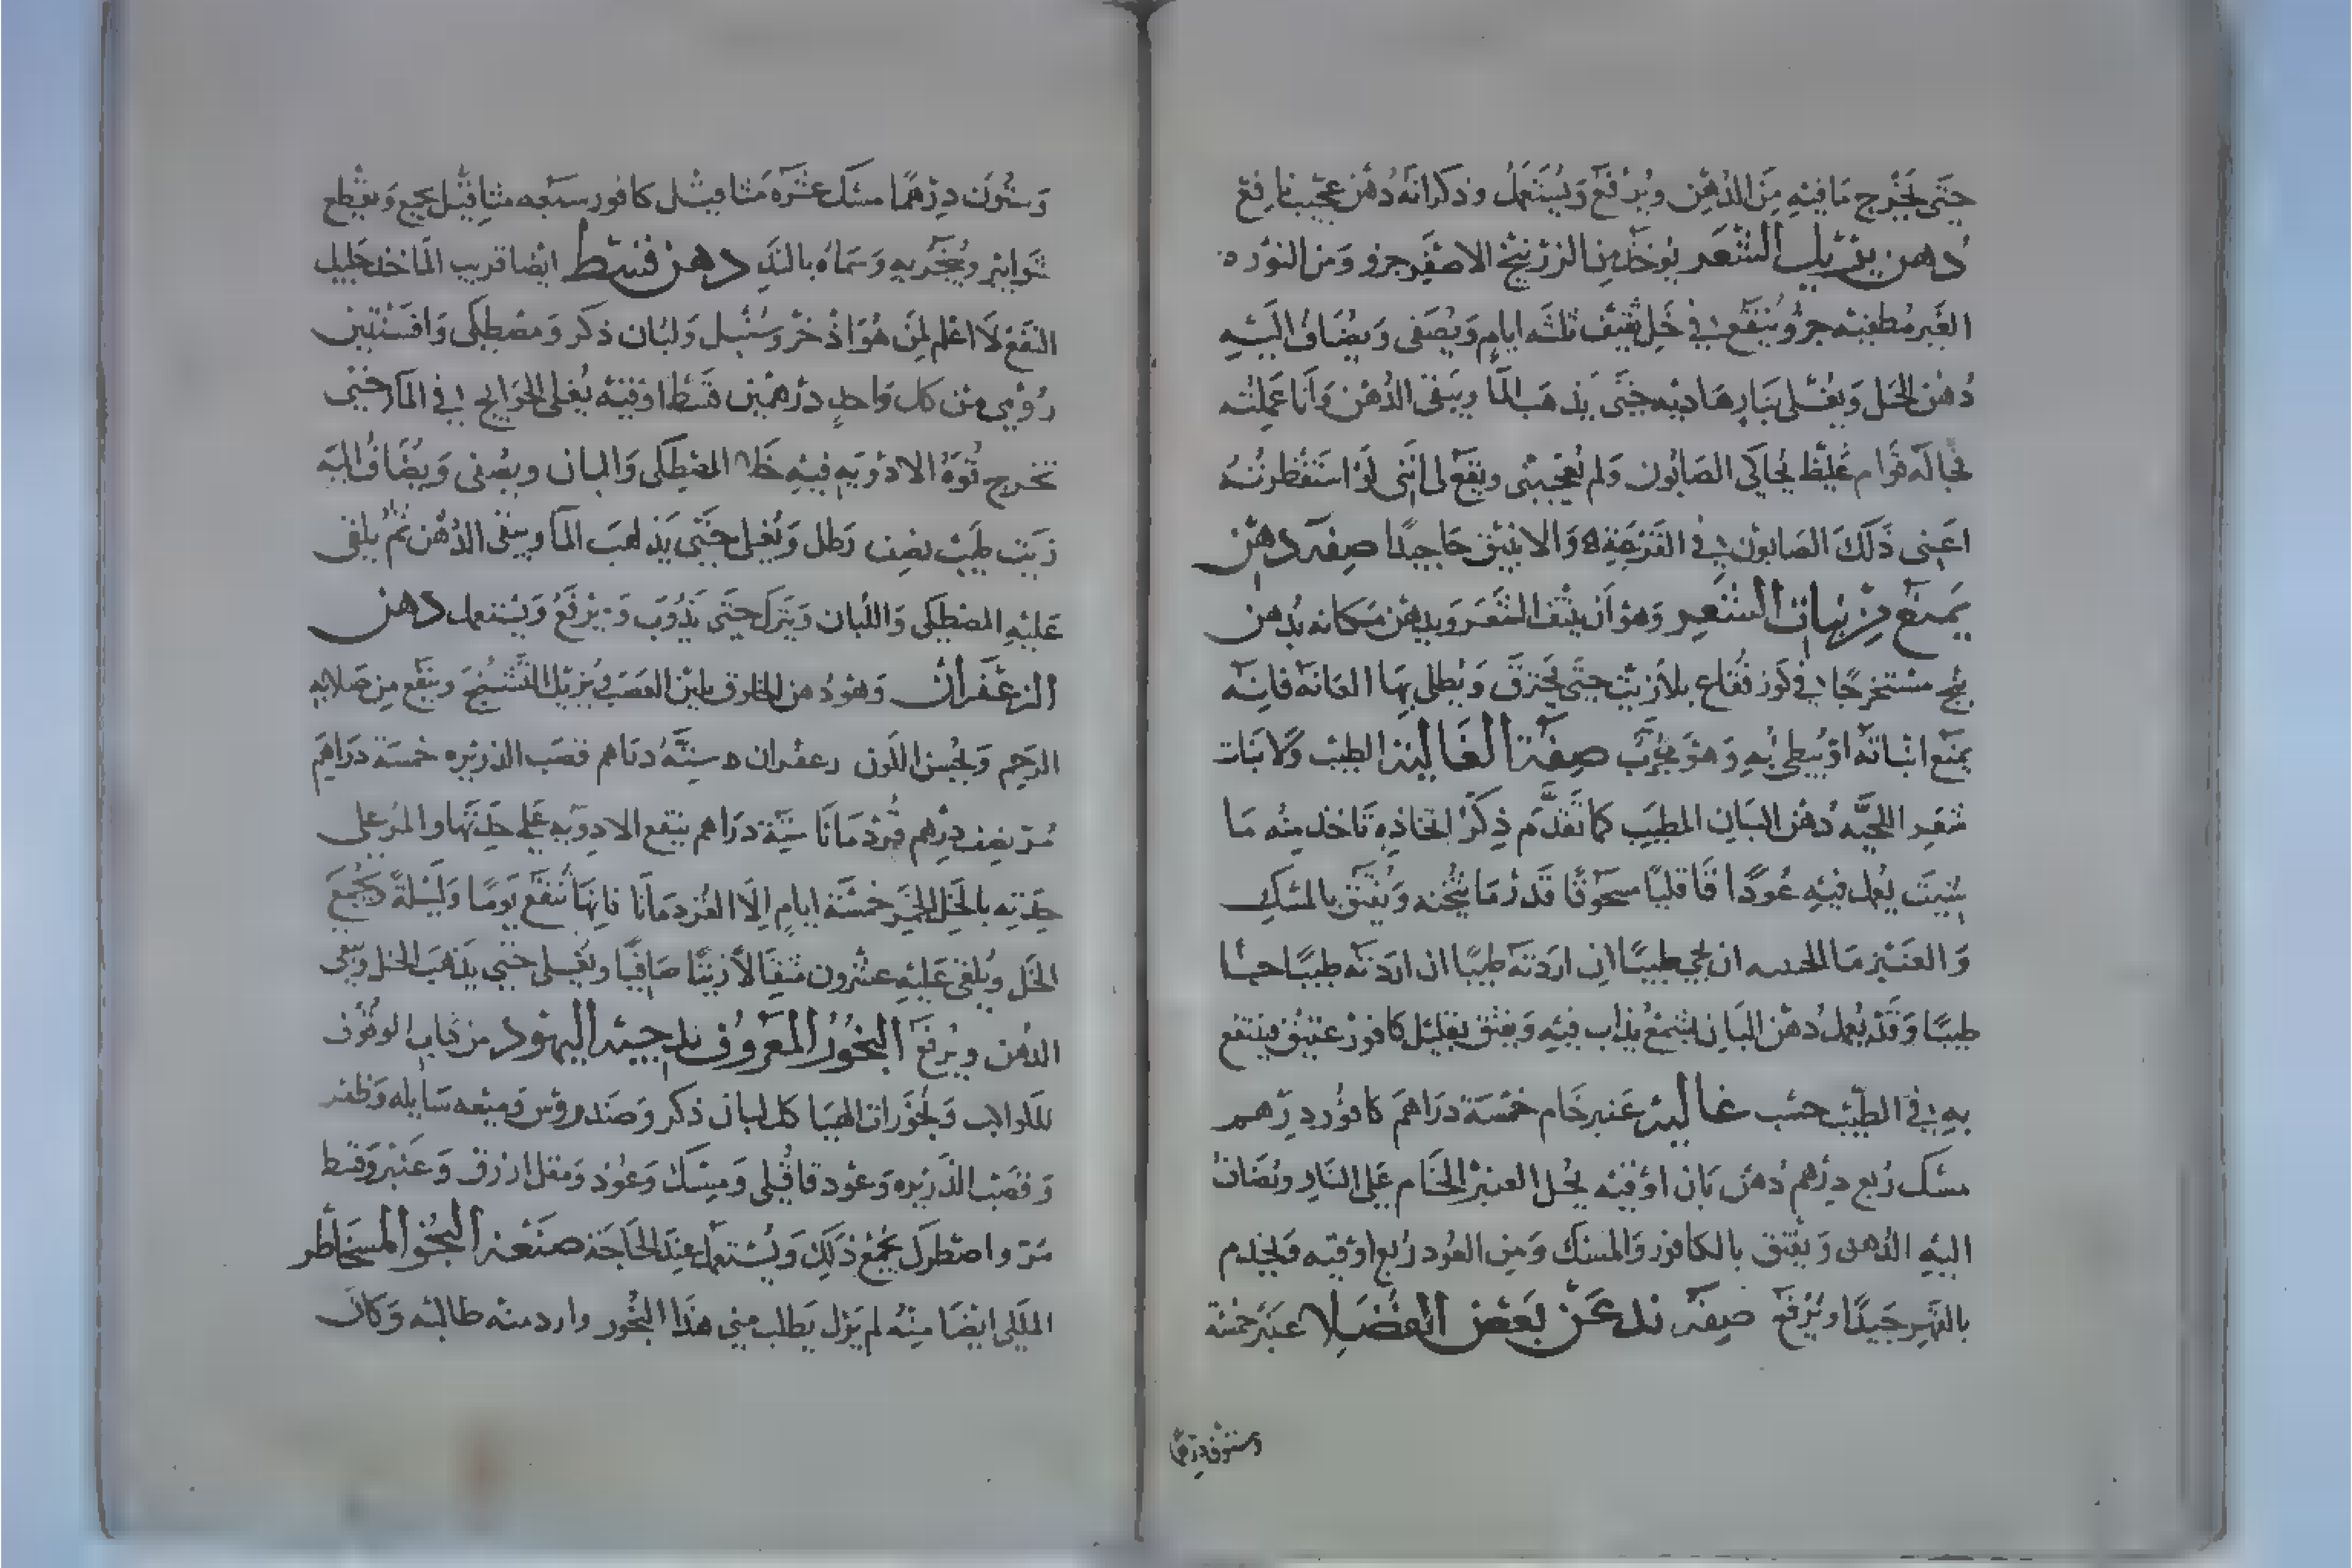 حتى يخرج ما فيه من الدهن ويرفع ويستعمل وذكر انه دهن عجيب نافع
دهن يزيل الشعر يوخذ من الزرنيخ الاصفر جزو ومن النوره
الغير مطفيه جزو ينقع في خل ثقيف ثلثه ايام ويصفى ويضاف اليه
دهن الخل ويغلى بنار هاديه حتى يذهب الما ويبقى الدهن وانا عملته
فجا له قوام غليظ يحاكي الصابون ولم يعجبني ويقع لي انني لو استقطرته
اعني ذلك الصابون في القرعه والانبيق جا جيدا صفه دهن
يمنع من نبات الشعر وهو ان ينتف الشعر ويدهن مكانه بدهن
بنج مستخرجا في كوز فقاع بلا زيت حتى يحترق ويطلى بها العانه فانه
يمنع انباته او يبطي به وهو مجرب صفة الغالية الطيب ولانبات
شعر اللحيه دهن البان المطيب كما تقدم ذكر اتخاذه تاخذ منه ما
شيت يعمل فيه عودا قاقليا مسحوقا قدر ما يثخنه ويفتق بالمسك
والعنبر ما ان يجي طيبا ان اردته طيبا ان اردته طيبا
طيبا وقد يعمل دهن البان بشمع يذاب فيه ويفتق بقليل كافور عتيق فينتفع
به في الطيب حسب غالية عنبر خام خمسة دراهم كافور درهم
مسك ربع درهم دهن بان اوقيه يحل العنبر الخام على النار ويضاف
اليه الدهن ويفتق بالكافور والمسك ومن العود ربع اوقيه ويخدم
بالفهر جيدا ويرفع صفه ند عن بعض الفضلا عنبر خمسة
وستون درهما
وستون درهما مسك عشره مثاقيل كافور سبعه مثاقيل يجمع ويقطع
شوابير ويبخر به وسماه بالند دهن قسط ايضا قريب الماخذ جليل
النفع لا اعلم لمن هو اذخر وسنبل ولبان ذكر ومصطكى وافسنتين
رومي من كل واحد درهمين قسط اوقيه يغلى الحوايج في الما حتى
تخرج قوة الادويه فيه خلا المصطكى واللبان ويصفى ويضاف اليه
زيت طيب نصف رطل ويغلى حتى يذهب الما ويبقى الدهن ثم يلقى
عليه المصطكى واللبان ويترك حتى يذوب ويرفع ويستعمل دهن
الزعفران وهو دهن الخلوق يلين العصب يزيل التشنج وينفع من صلابه
الرحم ويحسن اللون زعفران ستة دراهم قصب الذريره خمسة دراهم
مر نصف درهم قردمانا ستة دراهم ينقع الادويه على حدتها والمر على
حدته بالخل الخمر خمسة ايام الا القردمانا فانها تنقع يوما وليلة يجمع
الخل ويلقى عليه عشرون مثقالا زيتا صافيا ويغلى حتى يذهب الخل ويبقى
الدهن ويرفع البخور المعروف بلاجية اليهود من كتاب الوقوف
للكواكب وبخورات الهياكل لبان ذكر وصندروس وميعه سايله وظفر
وقصب الذريره وعود قاقلي ومسك وعود ومقل ازرق وعنبر وقسط
مر واصطرك يجمع ذلك ويستعمل عند الحاجة صنعة البخو
الملكي ايضا منه لم يزل يطلب مني هذا البخور وارد منه طالبه وكان